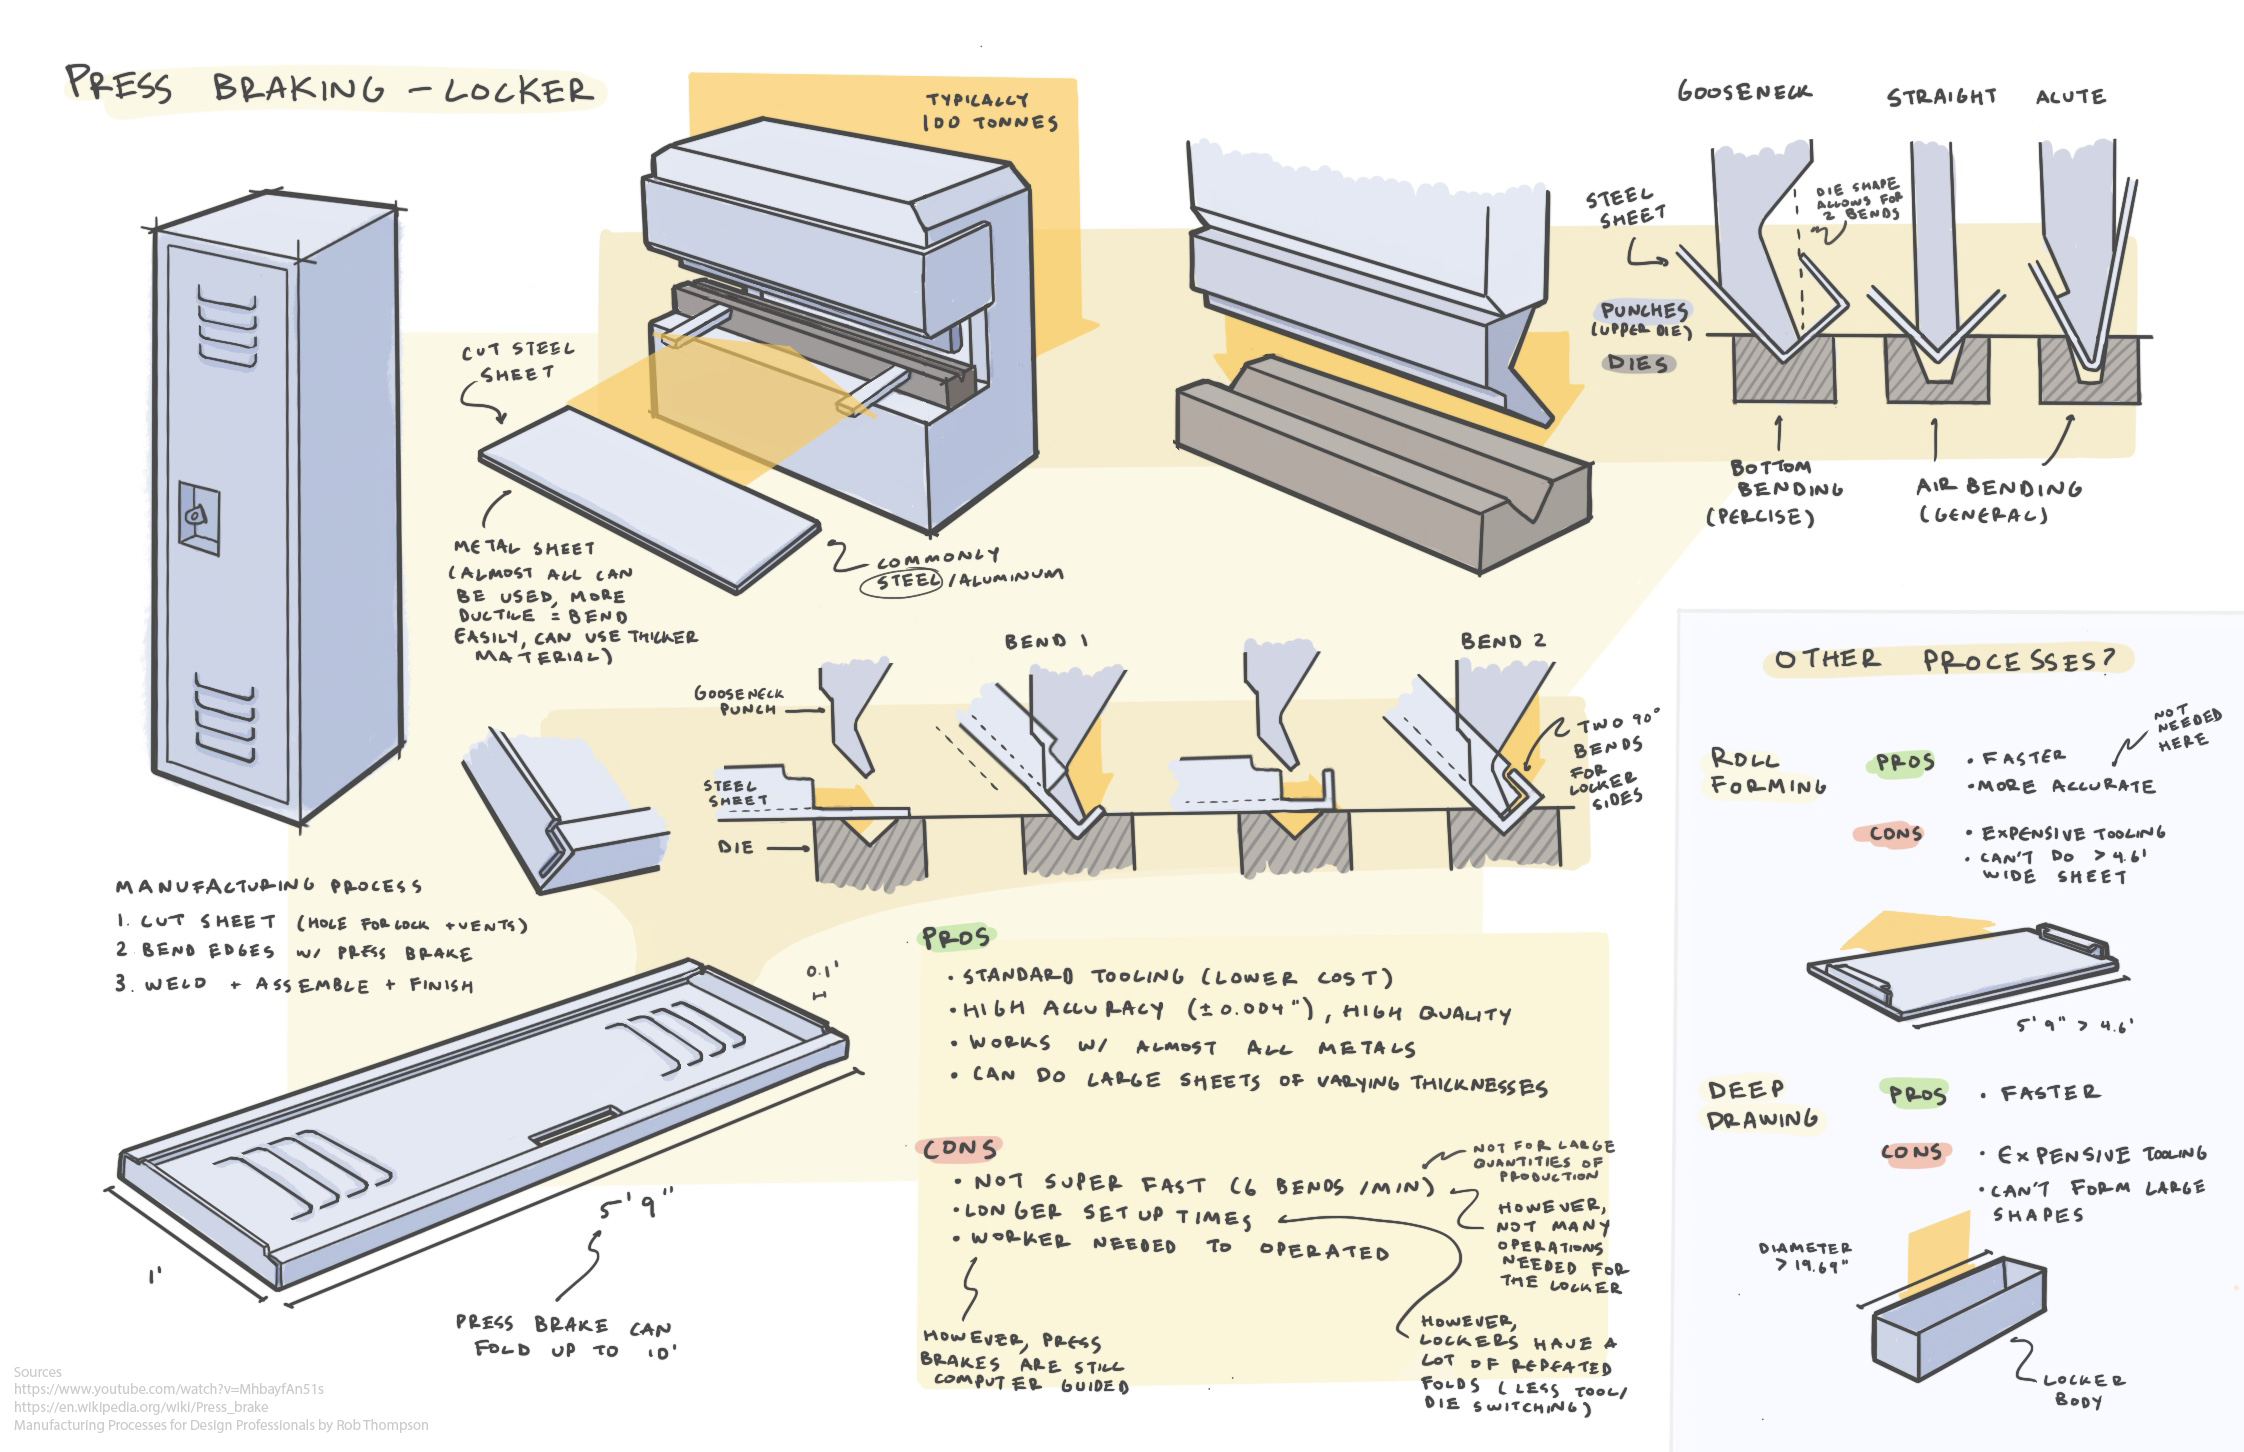 PRESS BRAKING - LOCKER
TYPICALLY
100 TONNES
CUT STEEL
SHEET
METAL SHEET
(ALMOST ALL CAN
BE USED, MORE
DUCTILE = BEND
EASILY, CAN USE THICKER
MATERIAL)
COMMONLY
STEEL/ALUMINUM
GOOSENECK
STRAIGHT
ALUTE
STEEL
SHEET
DIE SHAPE
ALLOWS FOR
2 BENDS
PUNCHES
(UPPER DIE)
DIES
BOTTOM
BENDING
(PERCISE)
AIR BENDING
(GENERAL)
BEND 1
BEND 2
GOOSENECK
PUNCH
STEEL
SHEET
DIE
TWO 90°
BENDS
FOR
LOCKER
SIDES
MANUFACTURING PROCESS
1. CUT SHEET (HOLE FOR LOCK + VENTS)
2 BEND EDGES W/ PRESS BRAKE
3. WELD + ASSEMBLE + FINISH
0.1'
5'9"
1'
PRESS BRAKE CAN
FOLD UP TO 10'
PROS
• STANDARD TOOLING (LOWER COST)
• HIGH ACCURACY (±0.004"), HIGH QUALITY
• WORKS W/ ALMOST ALL METALS
• CAN DO LARGE SHEETS OF VARYING THICKNESSES
CONS
• NOT SUPER FAST (6 BENDS/MIN)
• LONGER SET UP TIMES
• WORKER NEEDED TO OPERATED
NOT FOR LARGE
QUANTITIES OF
PRODUCTION
HOWEVER,
NOT MANY
OPERATIONS
NEEDED FOR
THE LOCKER
HOWEVER, PRESS
BRAKES ARE STILL
COMPUTER GUIDED
HOWEVER,
LOCKERS HAVE A
LOT OF REPEATED
FOLDS (LESS TOOL/
DIE SWITCHING)
OTHER PROCESSES?
ROLL
FORMING
PROS
• FASTER
• MORE ACCURATE
NOT
NEEDED
HERE
CONS
• EXPENSIVE TOOLING
• CAN'T DO > 4.6'
WIDE SHEET
5'9" > 4.6'
DEEP
DRAWING
PROS
• FASTER
CONS
• EXPENSIVE TOOLING
• CAN'T FORM LARGE
SHAPES
DIAMETER
> 19.69"
LOCKER
BODY
Sources
https://www.youtube.com/watch?v=MhbayfAn51s
https://en.wikipedia.org/wiki/Press_brake
Manufacturing Processes for Design Professionals by Rob Thompson